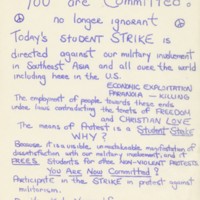 You are Committed.
no longer ignorant
Today's STUDENT STRIKE is
directed against our military involvement
in Southeast Asia and all over the world
including here in the U.S.
ECONOMIC EXPLOITATION
PARANOIA — KILLING
The employment of people towards these ends
under laws contradicting the tenets of FREEDOM
and CHRISTIAN LOVE
The means of Protest is a Student Strike
WHY?
Because it is a visible, unmistakable manifestation of
dissatisfaction with our military involvement, and it
FREES students for other NON-VIOLENT PROTESTS
You Are Now Committed?
Participate in the STRIKE in protest against
militarism.